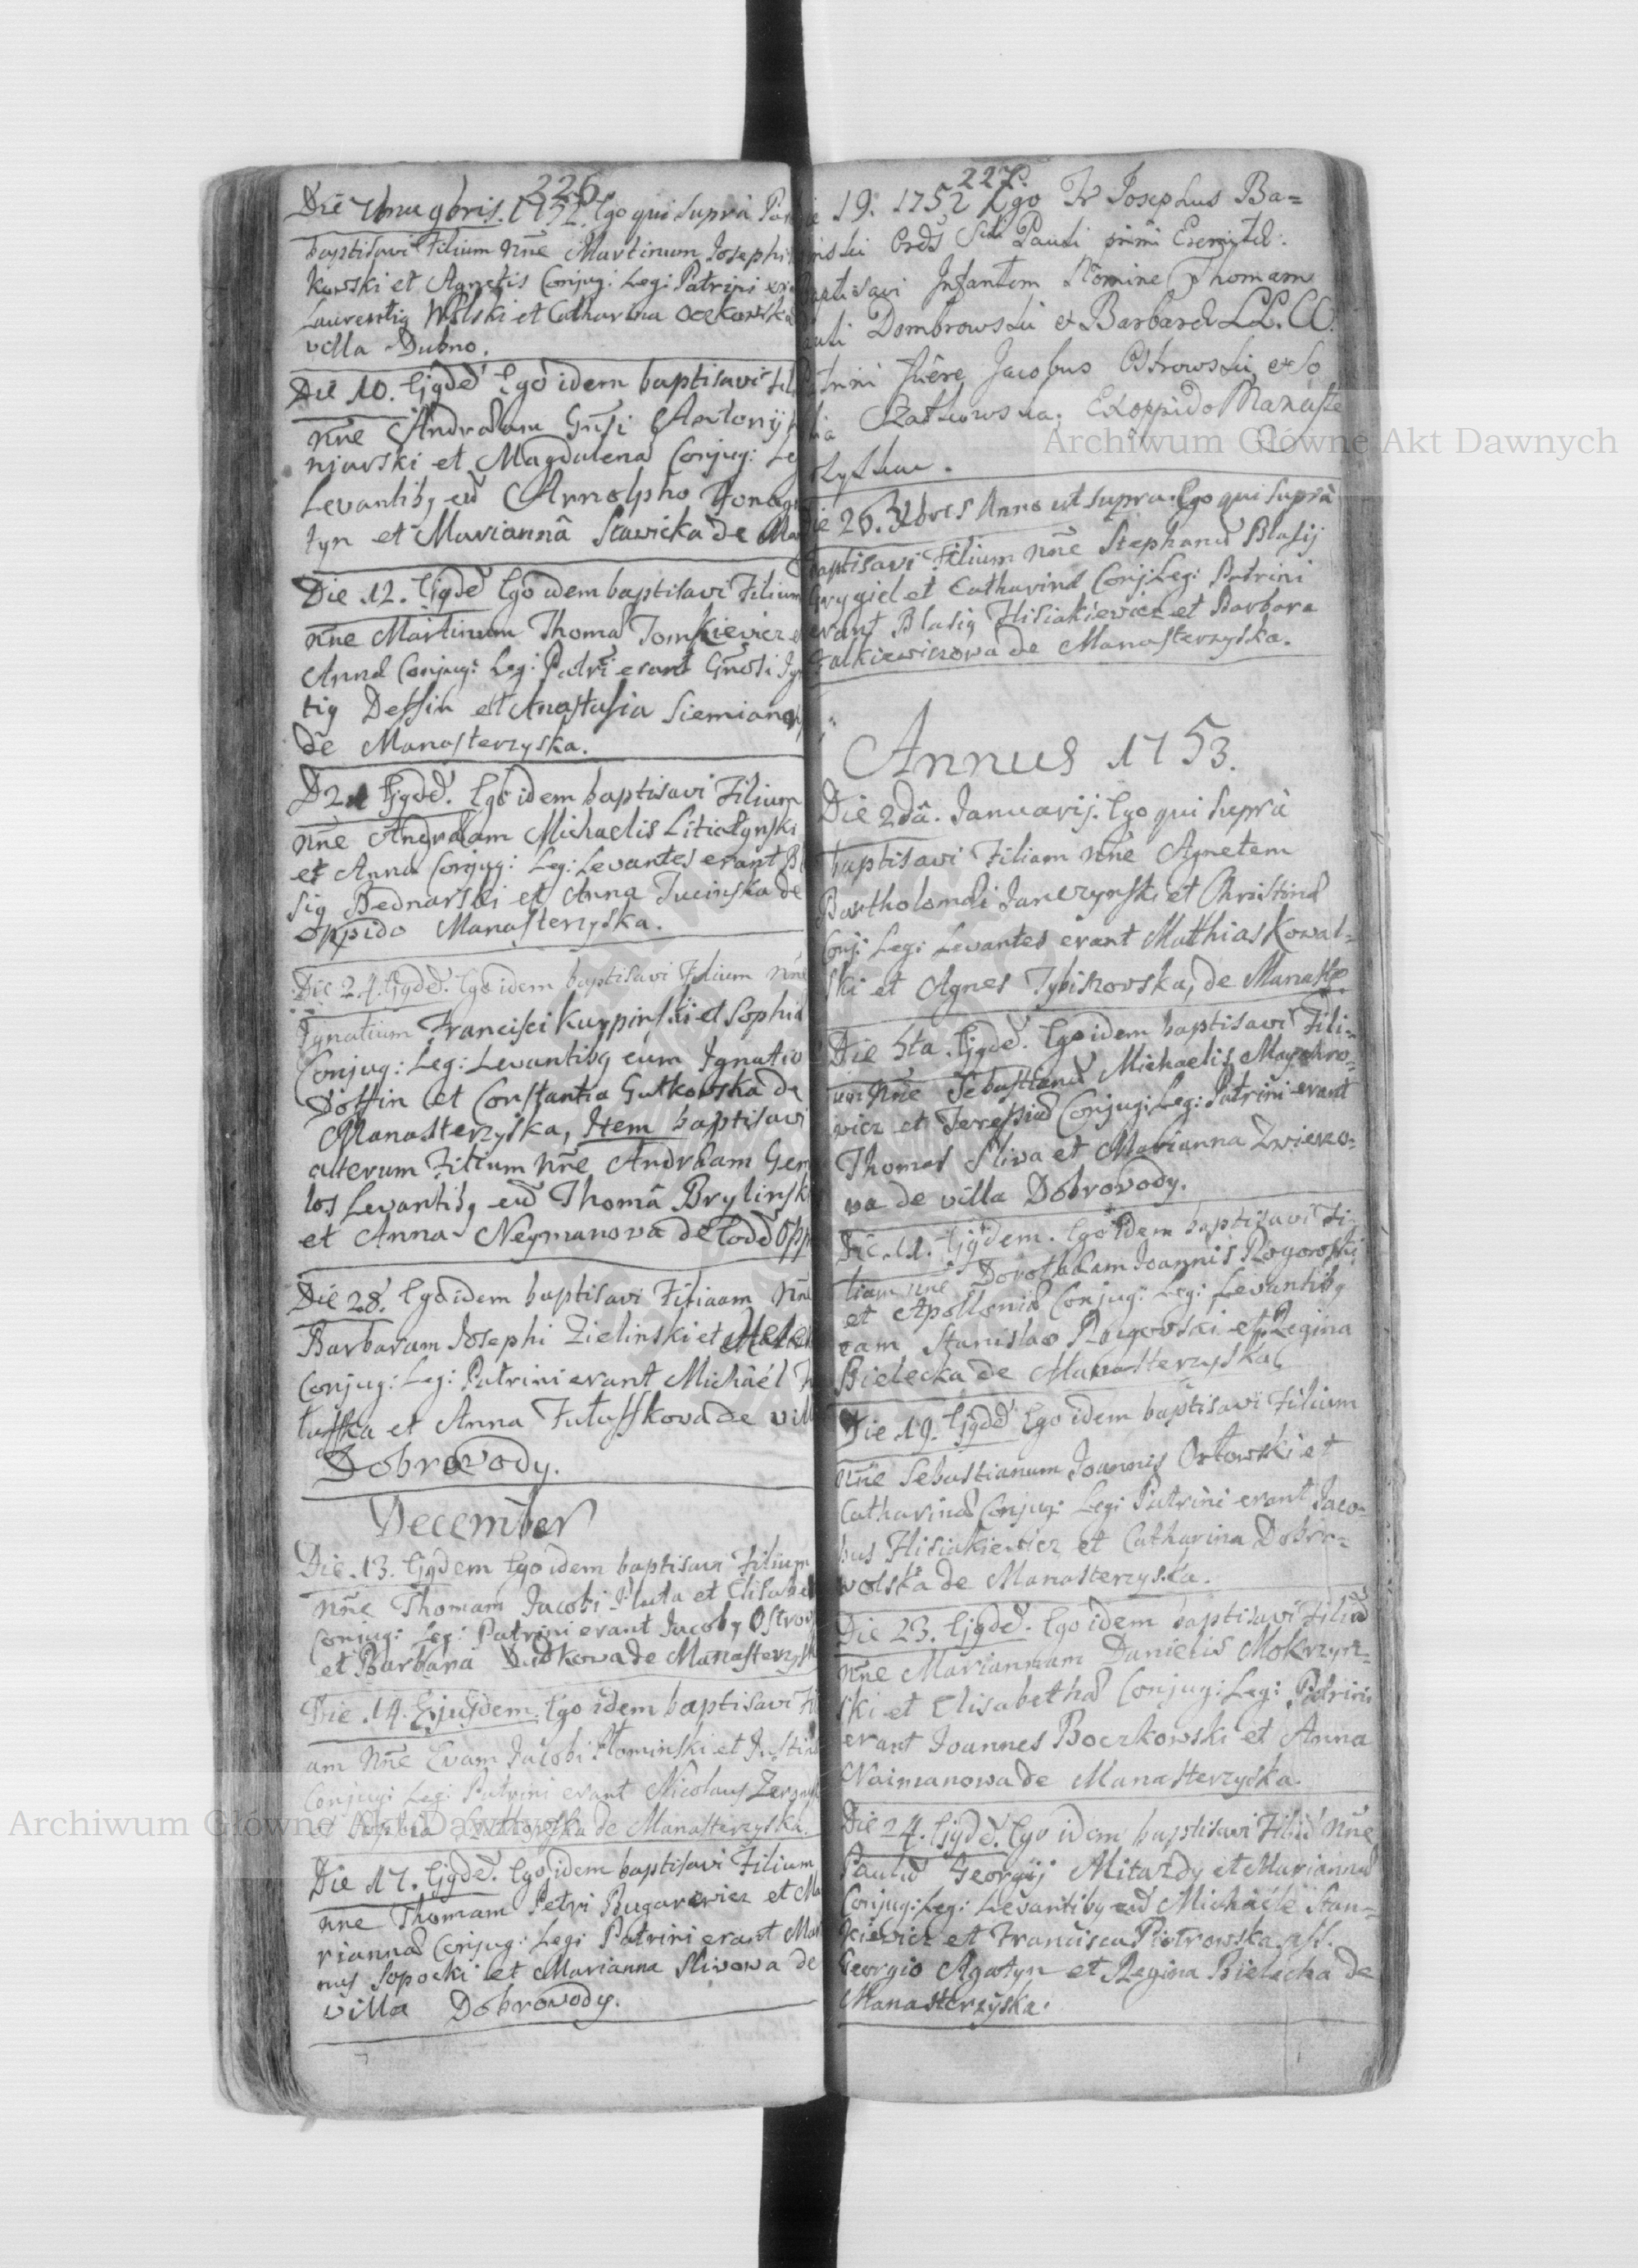 226.
Die 7bru 9bris. 1752. Ego qui supra
baptisavi Filium Nñe Martinum Josephi
kowski et Agnetis Conjug: Leg: Patrini
Laurentig Wolski et Catharina Ockowska
villa Dubno.
Die 10. Ejgdẽ Ego idem baptisavi
nñe Andraeam Gñsi Antonij
njawski et Magdalena Conjug:
Levantibg eũ Arnolpho
tyn et Mariannâ Sawicka de
Die 12. Ejgdẽ Ego idem baptisavi Filium
nñe Martinum Thoma Tomkiewicz
Anna Conjug: Leg: Patri erant Gñosi
tig Deffin et Anastasia
de Manasterzyska.
D 21 Ejgdẽ. Ego idem baptisavi Filium
nñe Andraeam Michaelis Litiatynski
et Anna Conjug: Leg: Levantes erant
sig Bednarski et Anna Tucinska de
oppido Manasterzyska.
Die 24. Ejgdẽ. Ego idem baptisavi Filium nñe
Ignatium Francisci Kurpinskii et Sophia
Conjug: Leg: Levantibg eum Ignatio
Doffin et Constantia Gutkowska de
Manasterzyska, Item baptisavi
alterum Filium nñe Andraeam
los Levantibg eũ Thomâ Brylinski
et Anna Neymanova de Eodẽ Opp
Die 28. Ego idem baptisavi Filiaam Nñe
Barbaram Josephi Zielinski et
Conjug: Leg: Patrini erant Michaël
tuffka et Anna Futuffkova de
Dobrovody.
December
Die .13. Ejgdem Ego idem baptisavi Filium
nñe Thomam Jacobi Pluta et
Conjug: Leg: Patrini erant Jacobg
et Barbara Dudkowa de Manasterzysk
Die .14. Ejusdem. Ego idem baptisavi
am Nñe Evam Jacobi Stominski et
Conjug: Leg: Patrini erant Nicolaus
et Sophia de Manasterzyska.
Die 17. Ejgdẽ. Ego idem baptisavi Filium
nñe Thomam Petri Bugarewicz et Ma
rianna Conjug: Leg: Patrini erant
nus Sopocki et Marianna Slivowa de
villa Dobrovody.
227.
19. 1752 Ego Fr Josephus Ba=
Ords Sti Pauli primi Eremitae.
Baptisavi Infantem Nomine Thomam
Dombrowski et Barbarae LL. CC.
fuêre Jacobus Ostrowski et So
Exoppido Manaste
Die 26. Xbris Anno ut supra. Ego qui supra
baptisavi Filium nñe Stephanũ Blasij
Grygiel et Catharina Conj: Leg: Patrini
erant Blasig Hisiakiewicz et Barbara
Falkiewiczowa de Manasterzyska.
Annus 1753.
Die 2dâ. Januarij. Ego qui supra
baptisavi Filiam nñe Agnetem
Bartholomaei Jarczynski et Christina
Conj: Leg: Levantes erant Matthias Kowal=
ski et Agnes Tybiszovska, de
Die 5ta. Ejgdẽ. Ego idem baptisavi Fili=
um nñe Sebastianũ Michaelis
wicz et Teressia Conjug: Leg: Patrini erant
Thomas Sliva et Marianna Zwiezo=
va de villa Dobrovody.
Die .11. Ejgdem. Ego idem baptisavi Fi=
liam nñe Dorothaeam Joannis Rogowski
et Apollonia Conjug: Leg: Levantibg
eam Stanislao Rogovski et Regina
Bielecka de Manasterzyska.
Die .19. Ejgdẽ Ego idem baptisavi Filium
nñe Sebastianum Joannis Ortowski et
Catharina Conjug: Leg: Patrini erant Jaco=
bus Hisiakiewicz et Catharina Dobro=
wolska de Manasterzyska.
Die 23. Ejgdẽ. Ego idem baptisavi Filiã
nñe Mariannam Danielis Mokrzyn=
ski et Elisabetha Conjug: Leg: Patrini
erant Joannes Boczkowski et Anna
Naimanowa de Manasterzyska.
Die 24. Ejgdẽ. Ego idem baptisavi Filiũ nñe
Paulũ Georgij Mitardy et Marianna
Conjug: Leg: Levantibg eũ Michaële Stan=
kiewicz et Francisca Piotrowska. ass.
Georgio Agotyn et Regina Bielecka de
Manasterzyska.
Archiwum Główne Akt Dawnych
Archiwum Główne Akt Dawnych